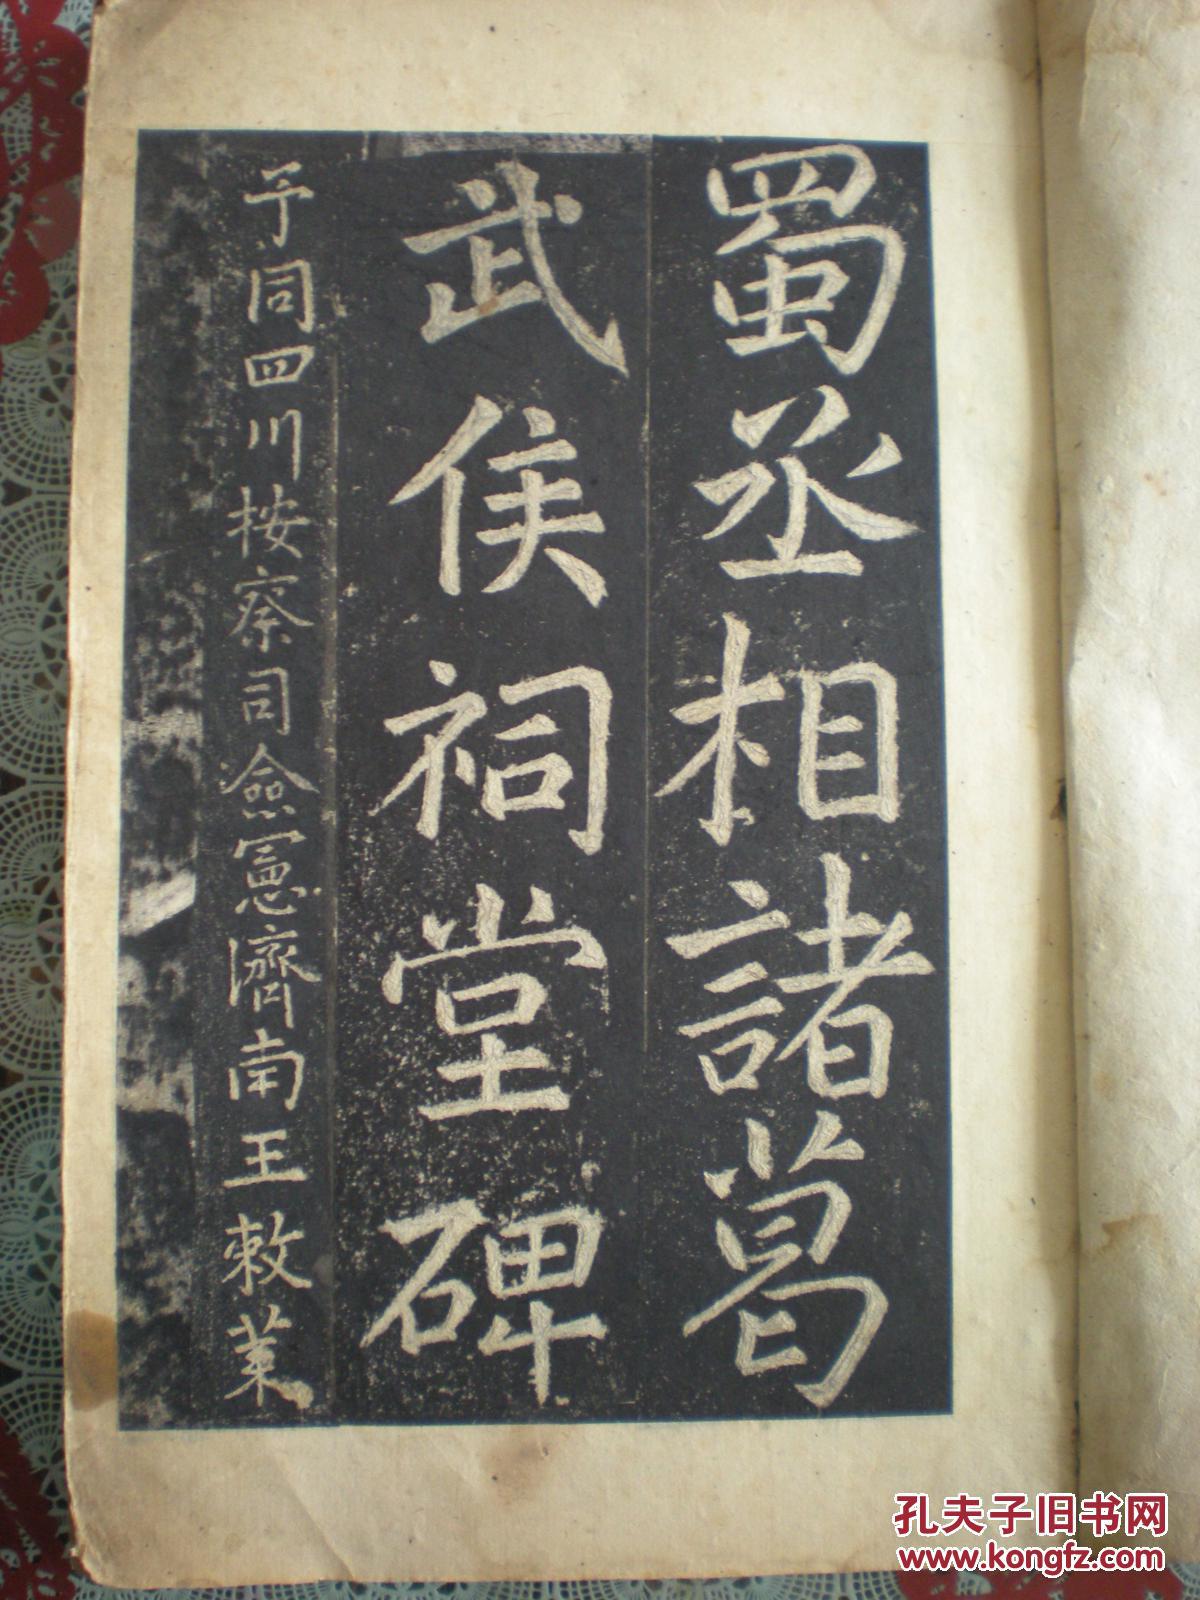 蜀丞相諸葛
武侯祠堂碑
予同四川按察司僉憲濟南王敕葉
孔夫子旧书网
www.kongfz.com